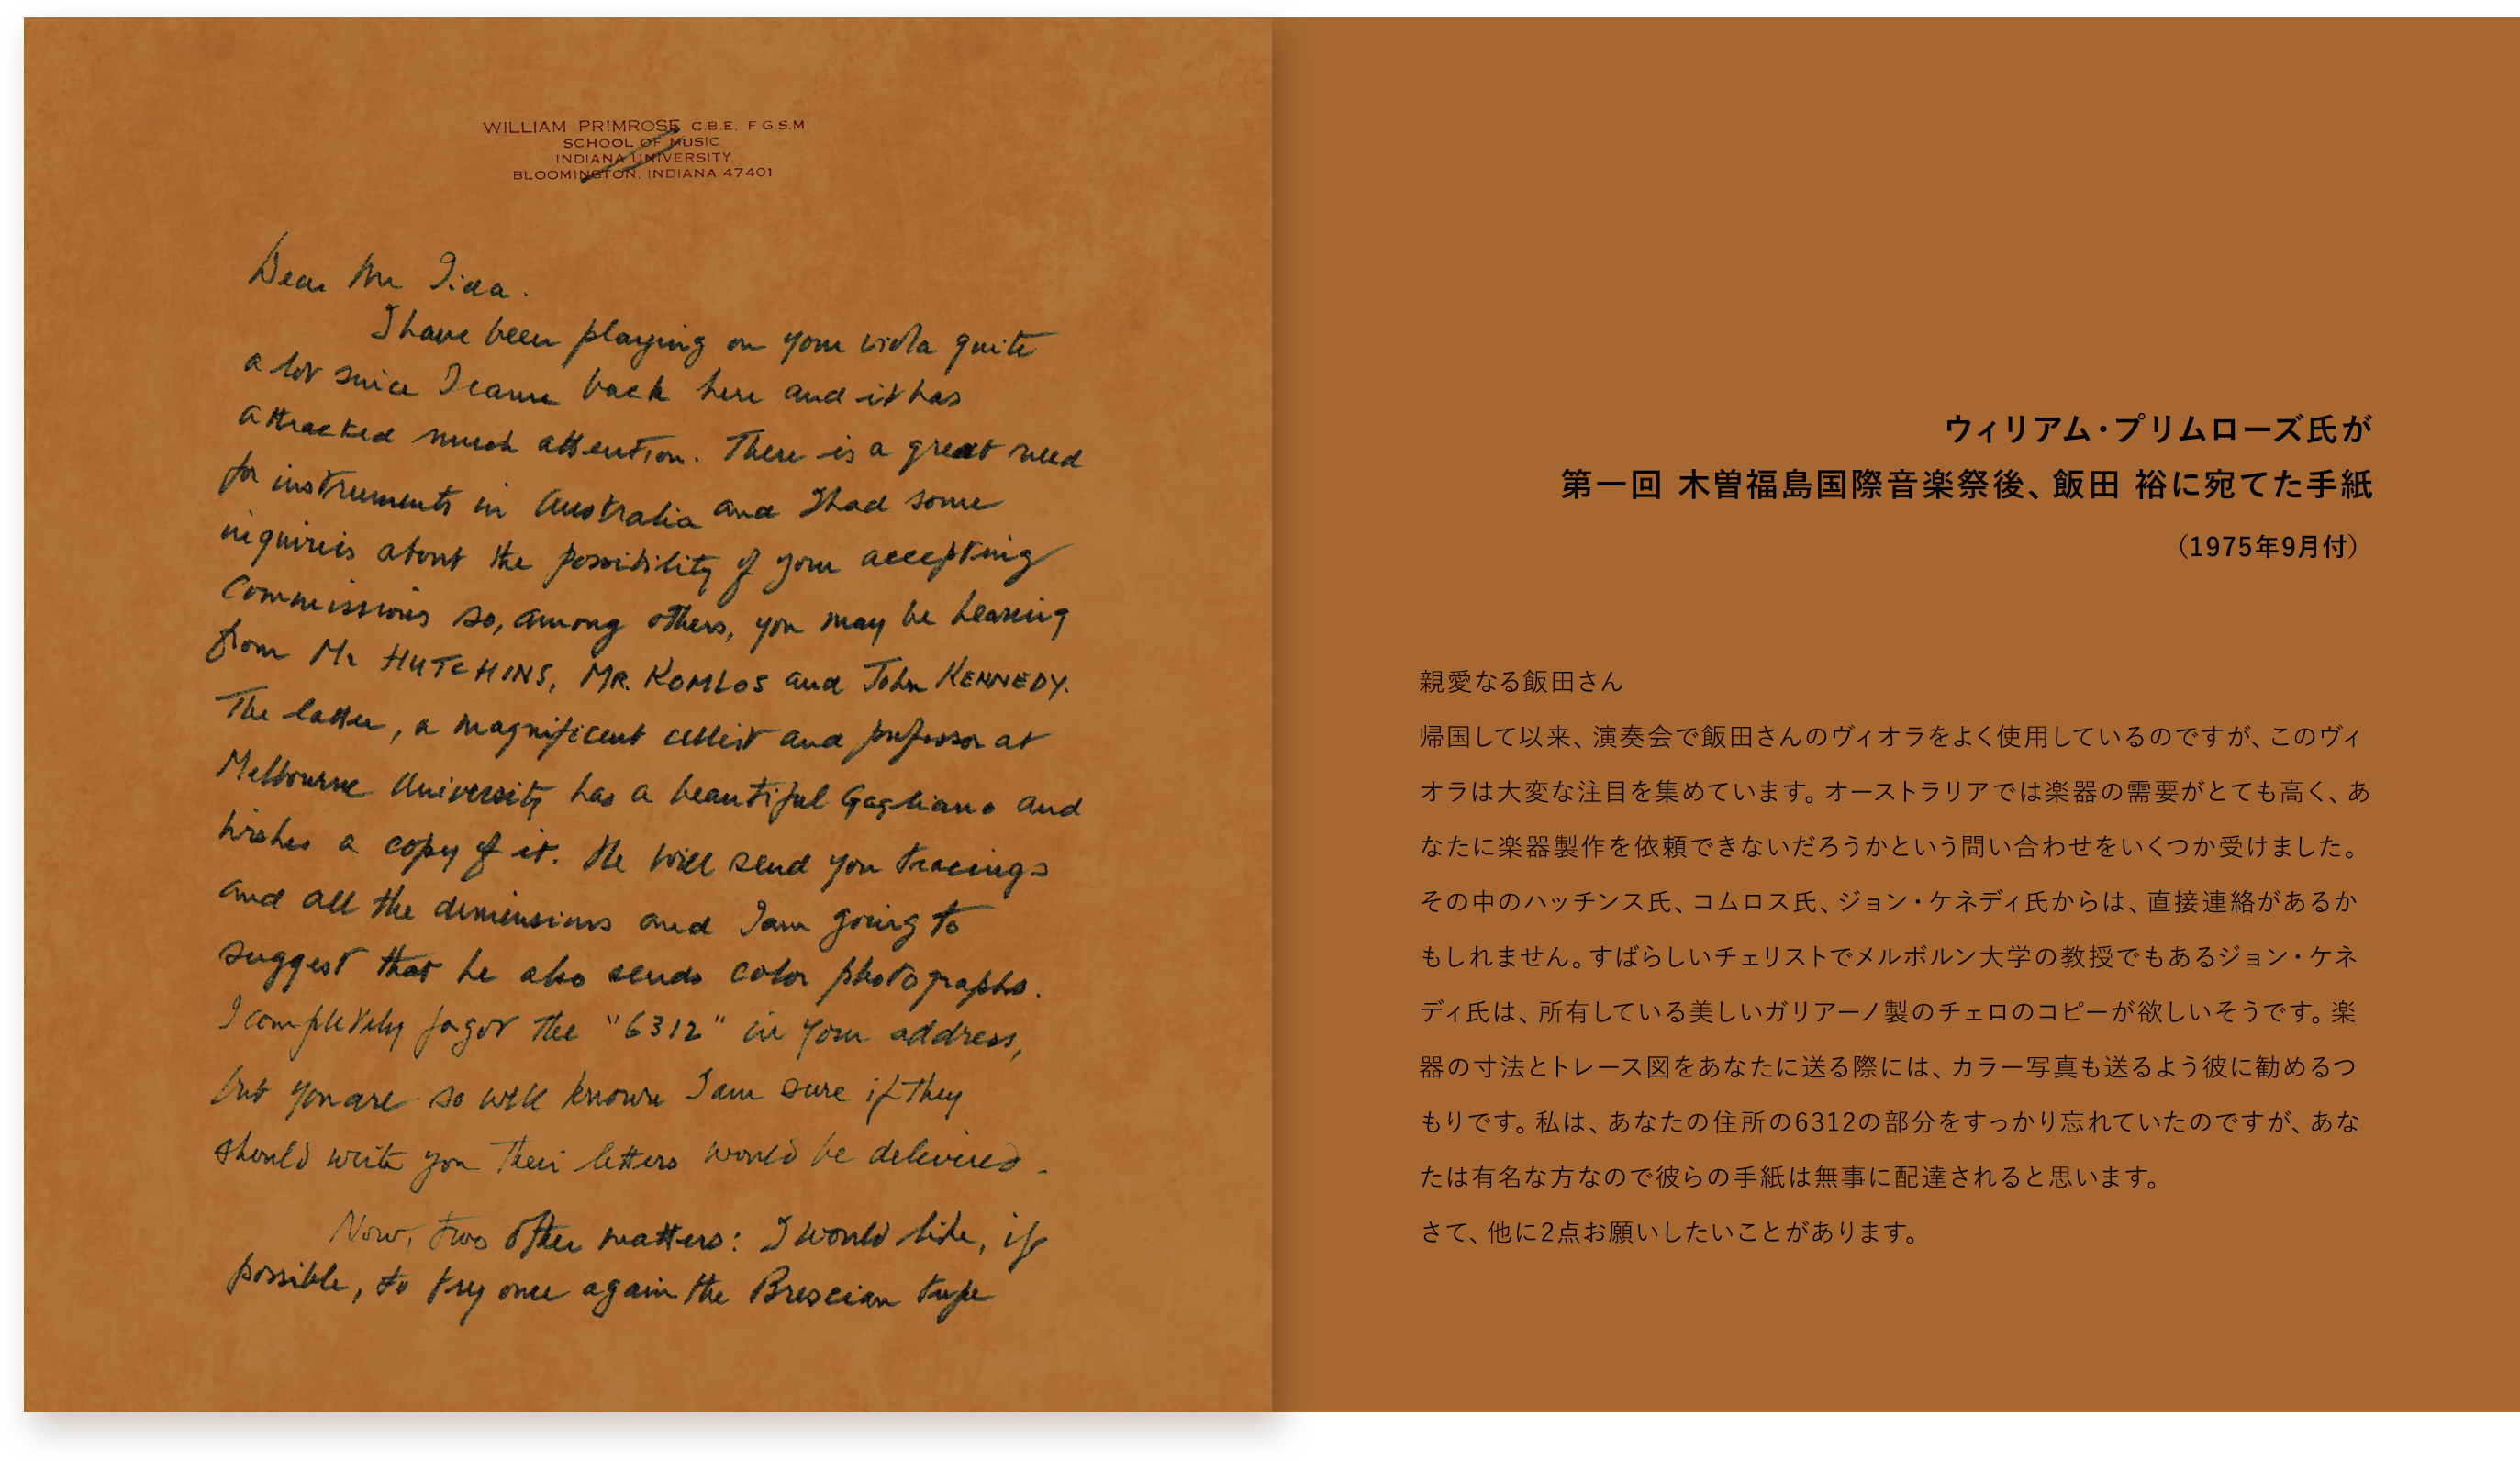 WILLIAM PRIMROSE C.B.E. F.G.S.M
SCHOOL OF MUSIC
INDIANA UNIVERSITY
BLOOMINGTON, INDIANA 47401
Dear Mr Iida.
I have been playing on your viola quite
a lot since I came back here and it has
attracked much attention. There is a great need
for instruments in Australia and I had some
inquiries about the possibility of your accepting
Commissions so, among others, you may be hearing
from Mr HUTCHINS, MR. KOMLOS and John KENNEDY.
The latter, a magnificent cellist and professor at
Melbourne University has a beautiful Gagliano and
wishes a copy of it. He will send you tracings
and all the dimensions and I am going to
suggest that he also sends color photographs.
I completely forgot the "6312" in your address,
but you are so well known I am sure if they
should write you their letters would be delivered.
Now, two other matters: I would like, if
possible, to try once again the Brescian type
ウィリアム・プリムローズ氏が
第一回 木曽福島国際音楽祭後、飯田 裕に宛てた手紙
（1975年9月付）
親愛なる飯田さん
帰国して以来、演奏会で飯田さんのヴィオラをよく使用しているのですが、このヴィ
オラは大変な注目を集めています。オーストラリアでは楽器の需要がとても高く、あ
なたに楽器製作を依頼できないだろうかという問い合わせをいくつか受けました。
その中のハッチンス氏、コムロス氏、ジョン・ケネディ氏からは、直接連絡があるか
もしれません。すばらしいチェリストでメルボルン大学の教授でもあるジョン・ケネ
ディ氏は、所有している美しいガリアーノ製のチェロのコピーが欲しいそうです。楽
器の寸法とトレース図をあなたに送る際には、カラー写真も送るよう彼に勧めるつ
もりです。私は、あなたの住所の6312の部分をすっかり忘れていたのですが、あな
たは有名な方なので彼らの手紙は無事に配達されると思います。
さて、他に2点お願いしたいことがあります。